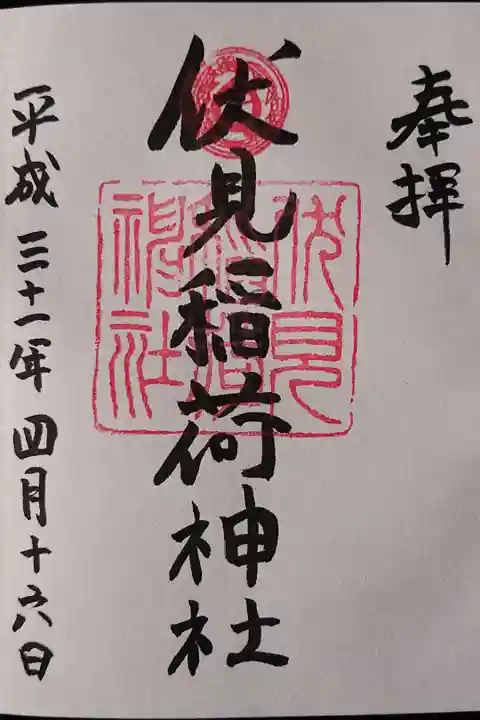 奉拝
伏見稲荷神社
平成三十一年四月十六日
伏見
神社